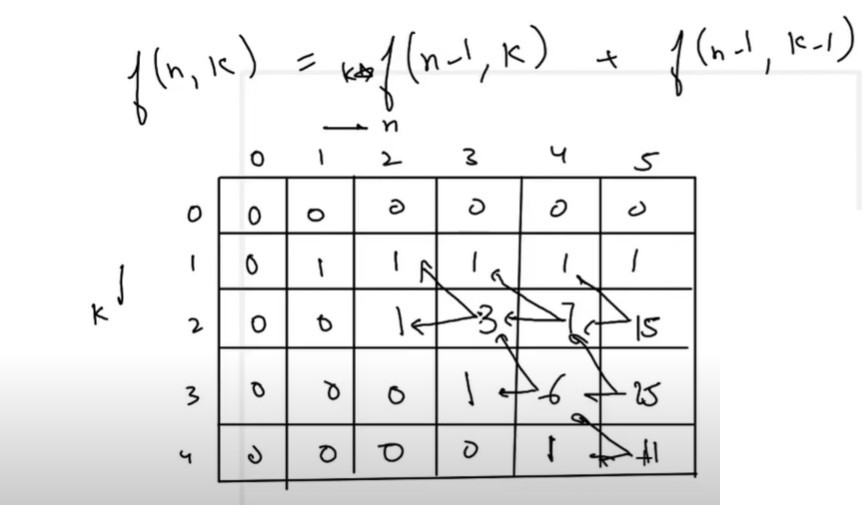 f(n, k) = k*f(n-1, k) + f(n-1, k-1)
→ n
0 1 2 3 4 5
0 0 0 0 0 0 0
1 0 1 1 1 1 1
k ↓
2 0 0 1 3 7 15
3 0 0 0 1 6 25
4 0 0 0 0 1